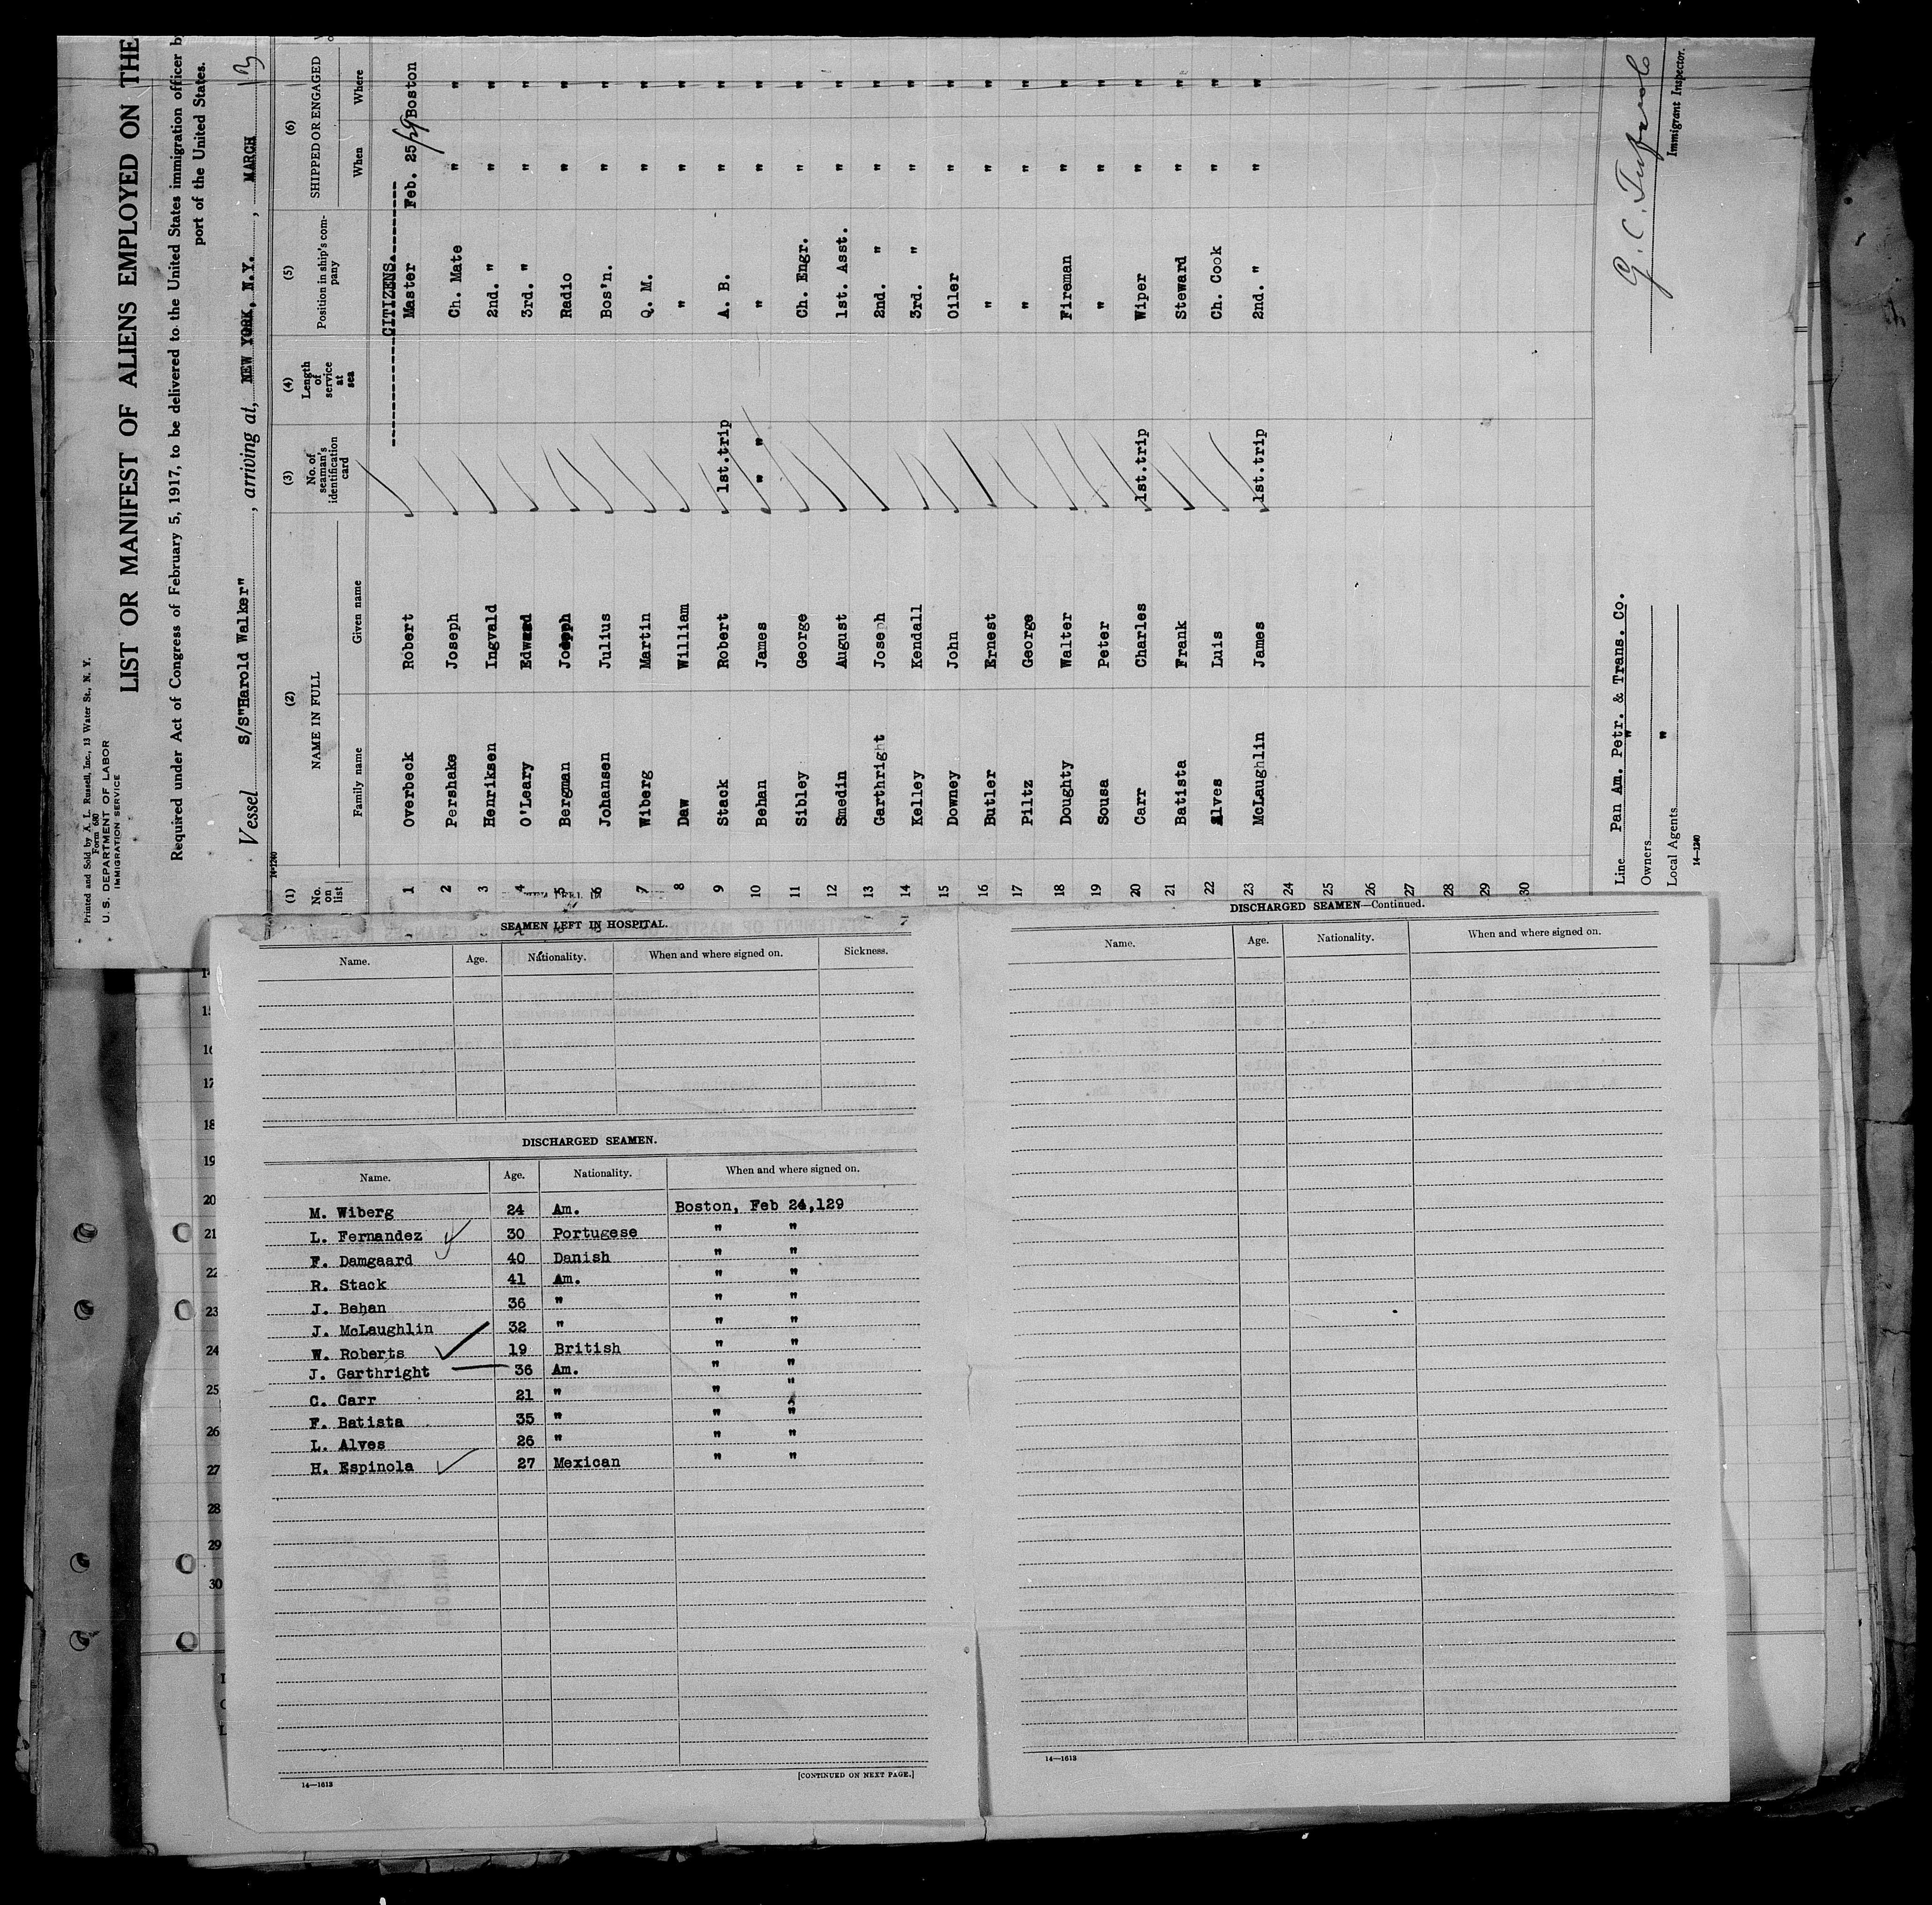 Printed and Sold by A. L. Russell, Inc., 13 Water St., N. Y.
Form 680
U. S. DEPARTMENT OF LABOR
IMMIGRATION SERVICE
LIST OR MANIFEST OF ALIENS EMPLOYED ON THE
Required under Act of Congress of February 5, 1917, to be delivered to the United States immigration officer
port of the United States.
Vessel S/S"Harold Walker", arriving at, NEW YORK, N.Y., MARCH
14-1240
(1) (2) (3) (4) (5) (6)
No. on list NAME IN FULL No. of seaman's identification card Length of service at sea Position in ship's company SHIPPED OR ENGAGED
Family name Given name When Where
CITIZENS.
1 Overbeck Robert Master Feb. 25/29 Boston
2 Pershake Joseph Ch. Mate " "
3 Henriksen Ingvald 2nd. " " "
4 O'Leary Edward 3rd. " " "
5 Bergman Joseph Radio " "
6 Johansen Julius Bos'n. " "
7 Wiberg Martin Q. M. " "
8 Daw William " " "
9 Stack Robert 1st.trip A. B. " "
10 Behan James " " " " "
11 Sibley George Ch. Engr. " "
12 Smedin August 1st. Asst. " "
13 Garthright Joseph 2nd. " " "
14 Kelley Kendall 3rd. " " "
15 Downey John Oiler " "
16 Butler Ernest " " "
17 Piltz George " " "
18 Doughty Walter Fireman " "
19 Sousa Peter " " "
20 Carr Charles 1st.trip Wiper " "
21 Batista Frank Steward " "
22 Alves Luis Ch. Cook " "
23 McLaughlin James 1st.trip 2nd. " " "
24
25
26
27
28
29
30
Line Pan Am. Petr. & Trans. Co.
Owners "
Local Agents "
14-1240
Immigrant Inspector.
14
15
16
17
18
19
20
21
22
23
24
25
26
27
28
29
30
SEAMEN LEFT IN HOSPITAL.
Name. Age. Nationality. When and where signed on. Sickness.
DISCHARGED SEAMEN.
Name. Age. Nationality. When and where signed on.
M. Wiberg 24 Am. Boston, Feb 24,129
L. Fernandez 30 Portugese " "
F. Damgaard 40 Danish " "
R. Stack 41 Am. " "
J. Behan 36 " " "
J. McLaughlin 32 " " "
W. Roberts 19 British " "
J. Garthright 36 Am. " "
C. Carr 21 " " "
F. Batista 35 " " "
L. Alves 26 " " "
H. Espinola 27 Mexican " "
14-1613
[CONTINUED ON NEXT PAGE.]
DISCHARGED SEAMEN—Continued.
Name. Age. Nationality. When and where signed on.
14-1613